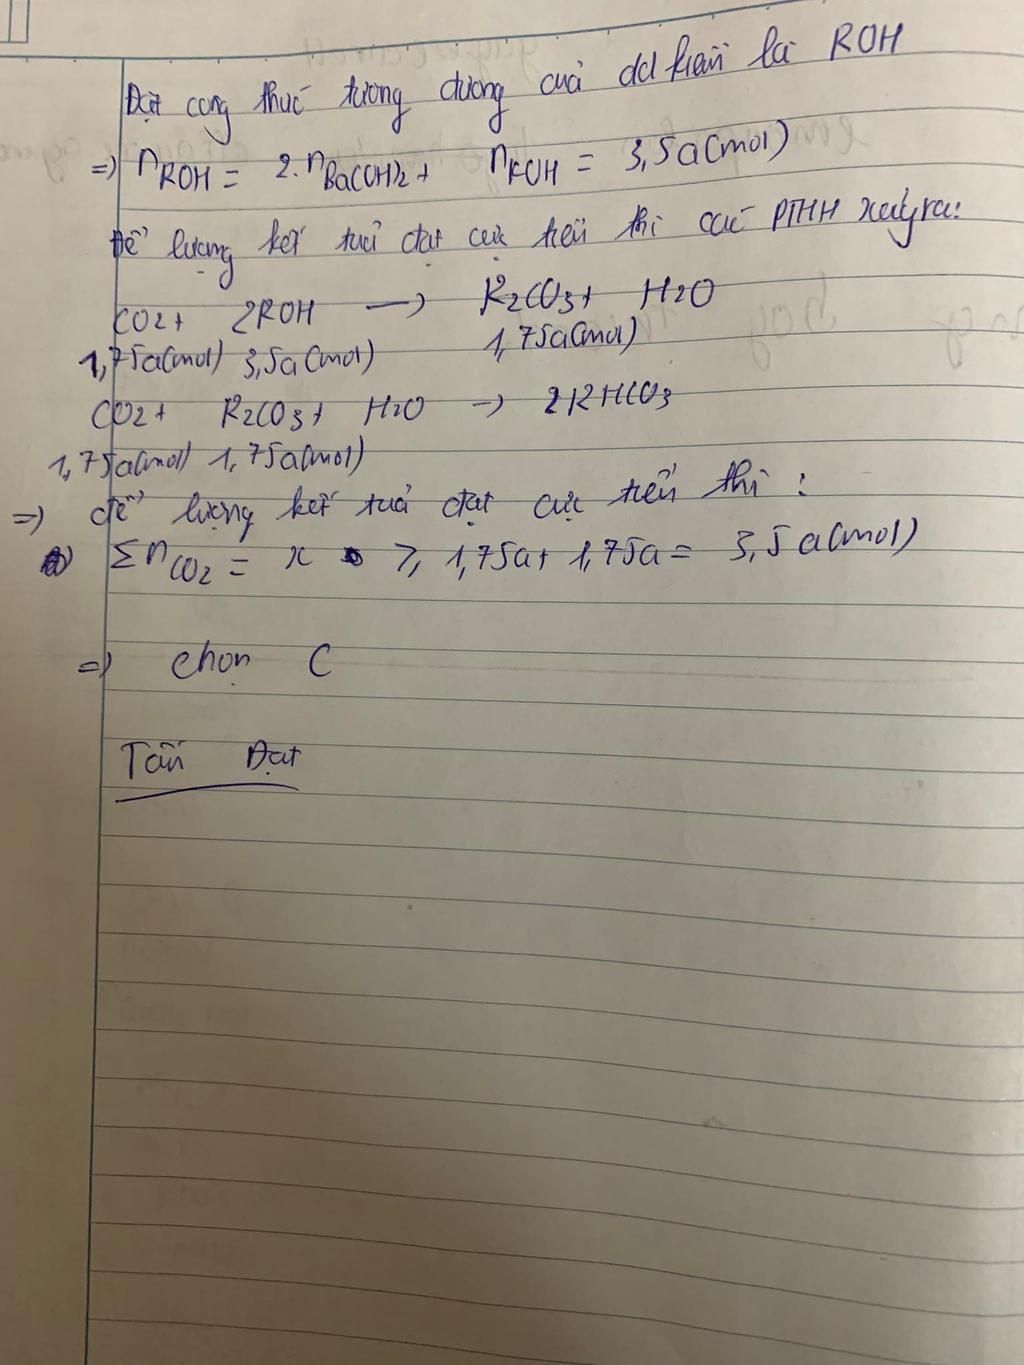 Đặt công thức tương đương của dd kiềm là ROH
=) nROH = 2.nBa(OH)2 + nKOH = 3,5a(mol)
Để lượng kết tủa đạt cực tiểu thì các PTHH xảy ra:
CO2 + 2ROH —> R2CO3 + H2O
1,75a(mol) 3,5a(mol) 1,75a(mol)
CO2 + R2CO3 + H2O -> 2RHCO3
1,75a(mol) 1,75a(mol)
=) để lượng kết tủa đạt cực tiểu thì :
∑nCO2 = x ≥ 1,75a + 1,75a = 3,5a(mol)
=) chọn C
Tấn Đạt